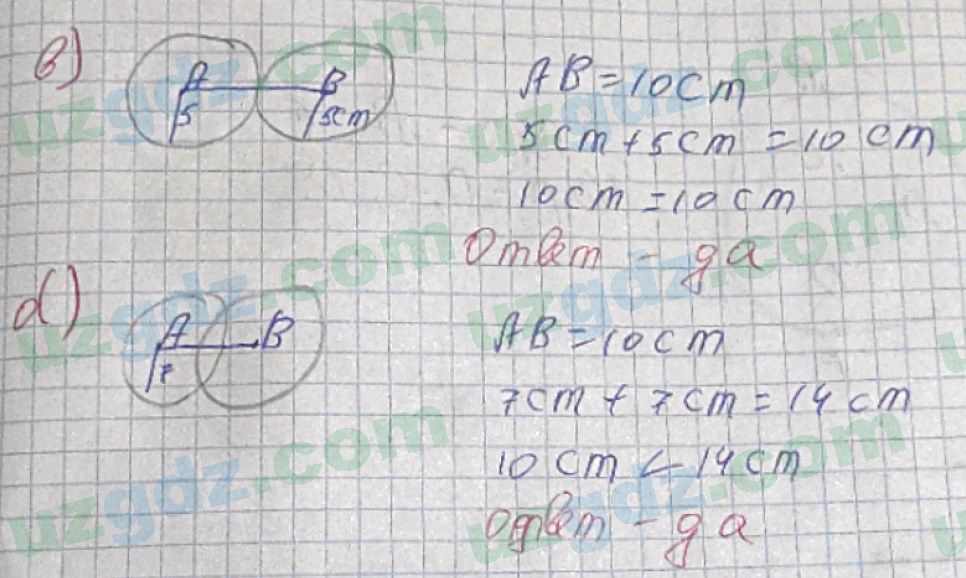 в)
A B
5 5cm
AB = 10cm
5cm + 5cm = 10 cm
10cm = 10 cm
Ответ - да
d)
A B
7
AB = 10cm
7cm + 7cm = 14 cm
10 cm < 14 cm
Ответ - да
uzgdz.com